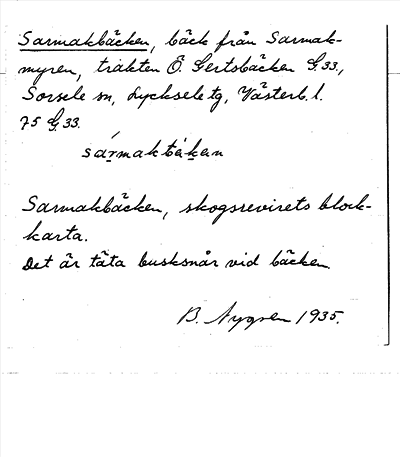 Sarmakbäcken, bäck från Sarmak-
myren, trakten Ö. Gertsbäcken G.33,
Sorsele sn, Lyckseletg, Västerb. l.
75 G.33.
sármakbäḱen
Sarmakbäcken, skogsrevirets block-
karta.
Det är täta busksnår vid bäcken.
B. 1935.